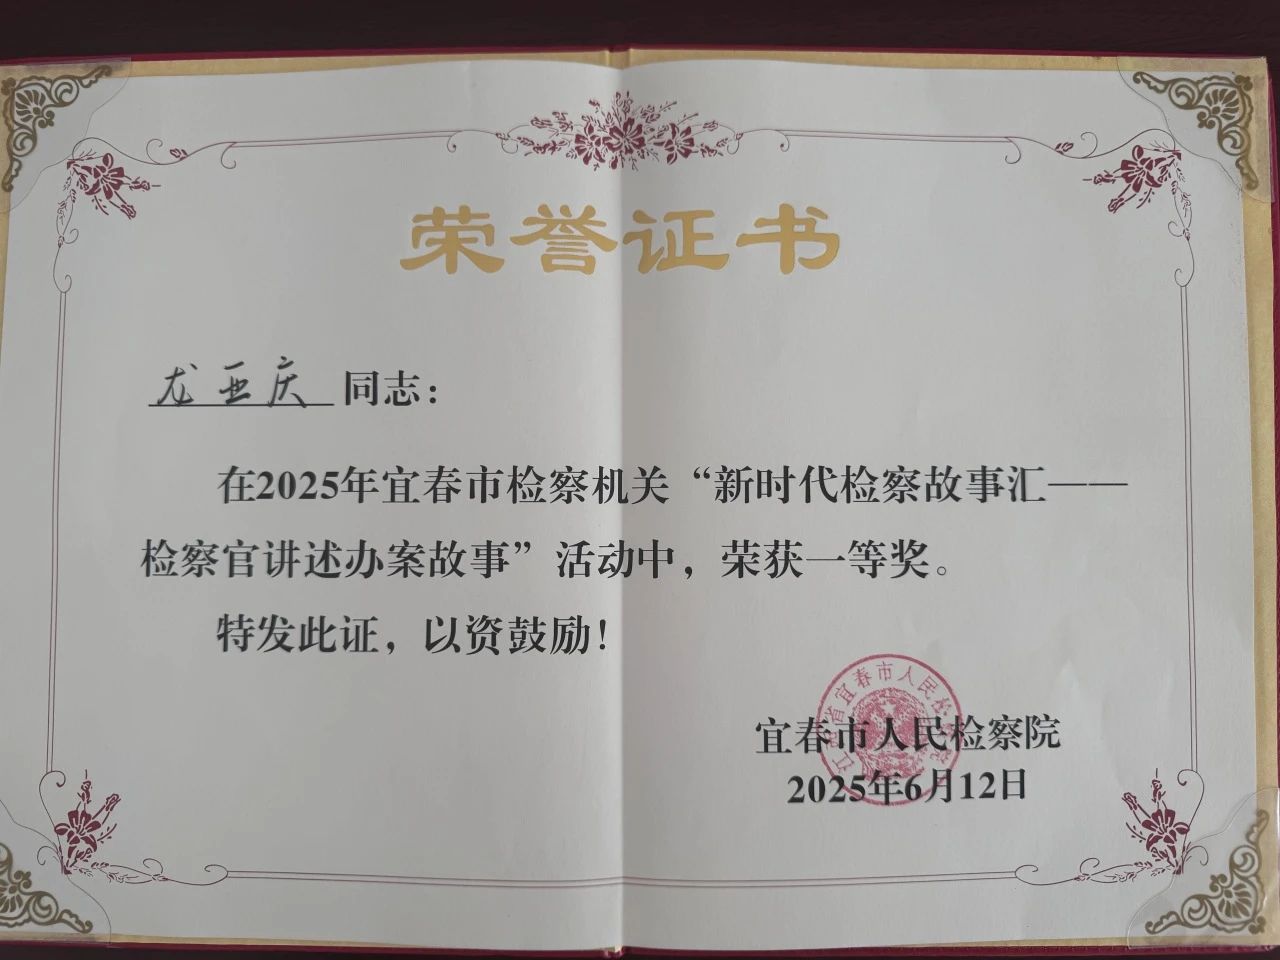 荣誉证书
龙亚庆同志：
在2025年宜春市检察机关“新时代检察故事汇——
检察官讲述办案故事”活动中，荣获一等奖。
特发此证，以资鼓励！
宜春市人民检察院
2025年6月12日